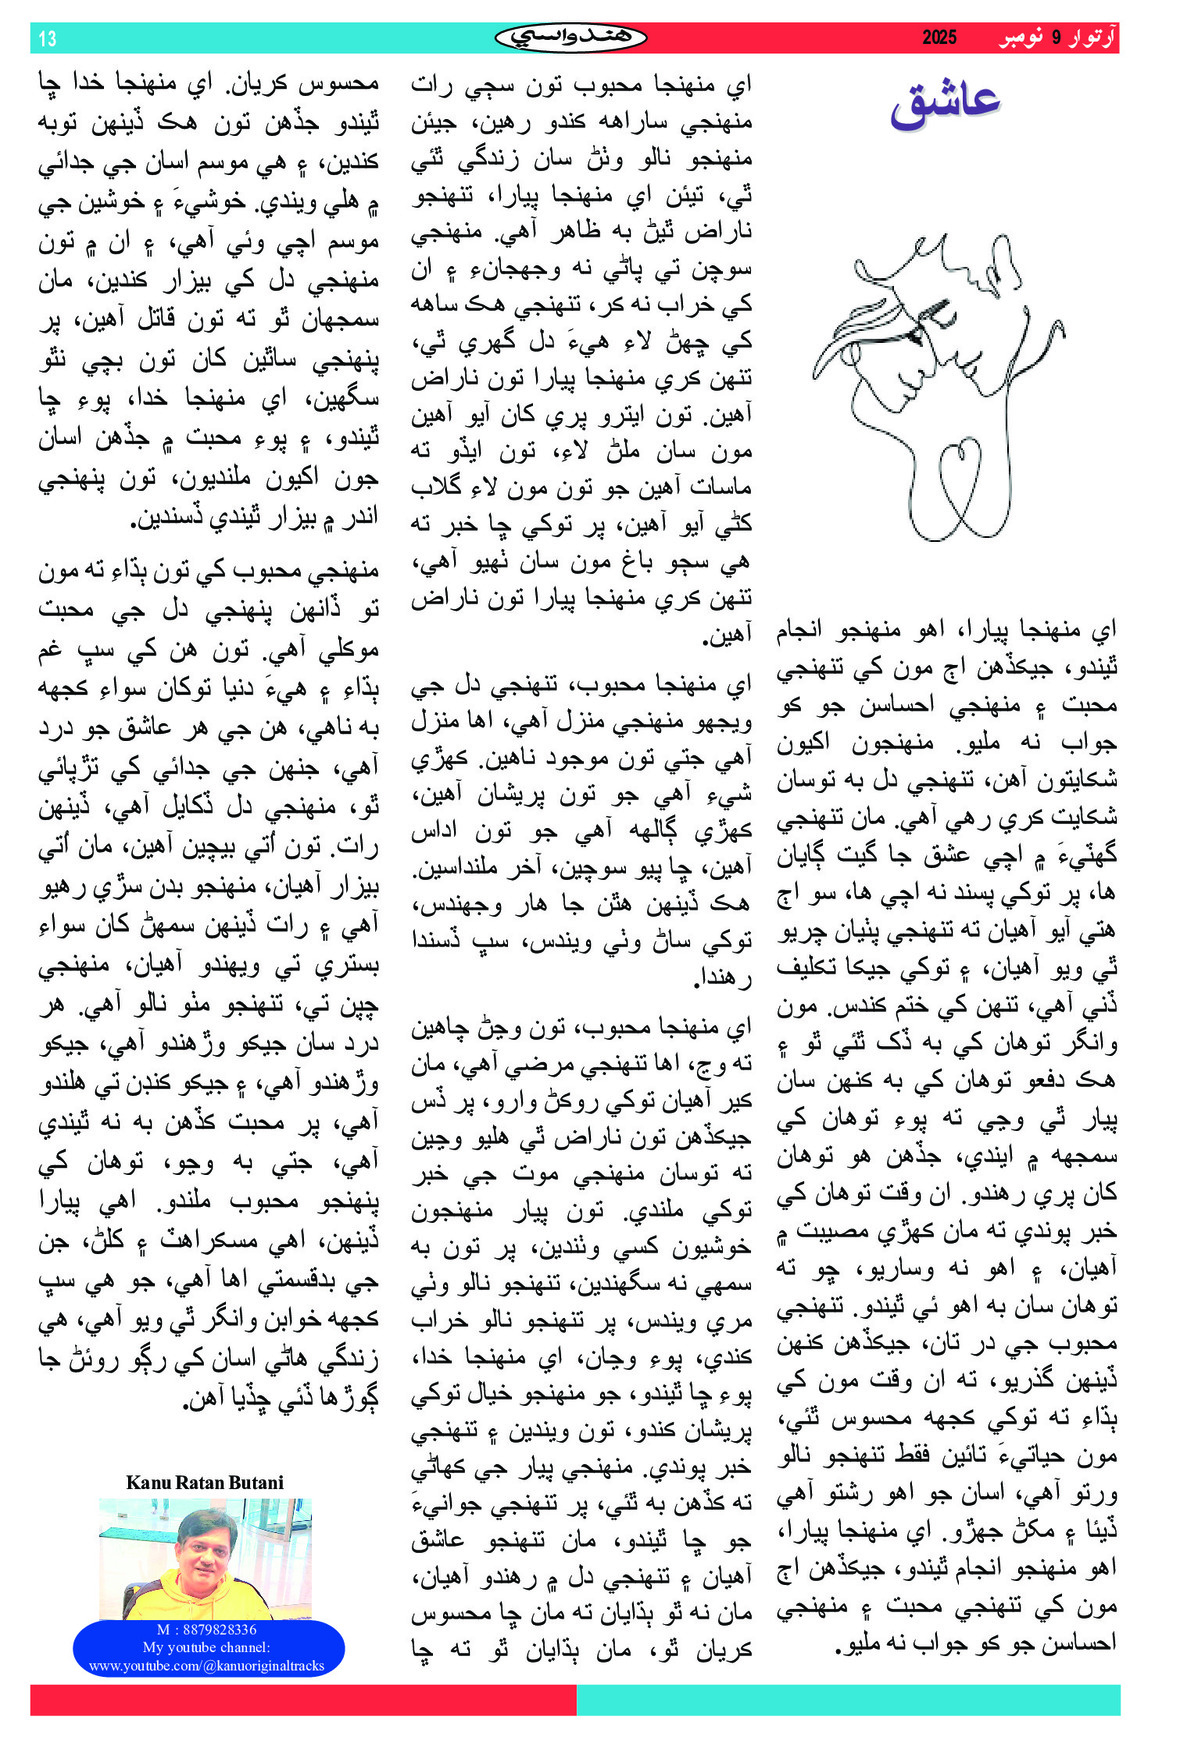 آرتوار 9 نومبر 2025
هندواسي
13
عاشق
اي منهنجا پيارا، اهو منهنجو انجام
ٿيندو، جيڪڏهن اڄ مون کي تنهنجي
محبت ۽ منهنجي احساسن جو ڪو
جواب نه مليو. منهنجون اکيون
شڪايتون آهن، تنهنجي دل به توسان
شڪايت ڪري رهي آهي. مان تنهنجي
گهٽيءَ ۾ اچي عشق جا گيت ڳايان
ها، پر توکي پسند نه اچي ها، سو اڄ
هتي آيو آهيان ته تنهنجي پٺيان چريو
ٿي ويو آهيان، ۽ توکي جيڪا تڪليف
ڏني آهي، تنهن کي ختم ڪندس. مون
وانگر توهان کي به ڏک ٿئي ٿو ۽
هڪ دفعو توهان کي به ڪنهن سان
پيار ٿي وڃي ته پوءِ توهان کي
سمجهه ۾ ايندي، جڏهن هو توهان
کان پري رهندو. ان وقت توهان کي
خبر پوندي ته مان ڪهڙي مصيبت ۾
آهيان، ۽ اهو نه وساريو، ڇو ته
توهان سان به اهو ئي ٿيندو. تنهنجي
محبوب جي در تان، جيڪڏهن ڪنهن
ڏينهن گذريو، ته ان وقت مون کي
ٻڌاءِ ته توکي ڪجهه محسوس ٿئي،
مون حياتيءَ تائين فقط تنهنجو نالو
ورتو آهي، اسان جو اهو رشتو آهي
ڏيئا ۽ مکڻ جهڙو. اي منهنجا پيارا،
اهو منهنجو انجام ٿيندو، جيڪڏهن اڄ
مون کي تنهنجي محبت ۽ منهنجي
احساسن جو ڪو جواب نه مليو.
اي منهنجا محبوب تون سڄي رات
منهنجي ساراهه ڪندو رهين، جيئن
منهنجو نالو وٺڻ سان زندگي ٿئي
ٿي، تيئن اي منهنجا پيارا، تنهنجو
ناراض ٿيڻ به ظاهر آهي. منهنجي
سوچن تي پاڻي نه وجهجانءِ ۽ ان
کي خراب نه ڪر، تنهنجي هڪ ساهه
کي ڇهڻ لاءِ هيءَ دل گهري ٿي،
تنهن ڪري منهنجا پيارا تون ناراض
آهين. تون ايترو پري کان آيو آهين
مون سان ملڻ لاءِ، تون ايڏو ته
ماسات آهين جو تون مون لاءِ گلاب
کڻي آيو آهين، پر توکي ڇا خبر ته
هي سڄو باغ مون سان ٺهيو آهي،
تنهن ڪري منهنجا پيارا تون ناراض
آهين.
اي منهنجا محبوب، تنهنجي دل جي
ويجهو منهنجي منزل آهي، اها منزل
آهي جتي تون موجود ناهين. ڪهڙي
شيءِ آهي جو تون پريشان آهين،
ڪهڙي ڳالهه آهي جو تون اداس
آهين، ڇا پيو سوچين، آخر ملنداسين.
هڪ ڏينهن هٿن جا هار وجهندس،
توکي ساڻ وٺي ويندس، سڀ ڏسندا
رهندا.
اي منهنجا محبوب، تون وڃڻ چاهين
ته وڃ، اها تنهنجي مرضي آهي، مان
ڪير آهيان توکي روڪڻ وارو، پر ڏس
جيڪڏهن تون ناراض ٿي هليو وڃين
ته توسان منهنجي موت جي خبر
توکي ملندي. تون پيار منهنجون
خوشيون کسي وٺندين، پر تون به
سمهي نه سگهندين، تنهنجو نالو وٺي
مري ويندس، پر تنهنجو نالو خراب
ڪندي، پوءِ وڃان، اي منهنجا خدا،
پوءِ ڇا ٿيندو، جو منهنجو خيال توکي
پريشان ڪندو، تون ويندين ۽ تنهنجي
خبر پوندي. منهنجي پيار جي ڪهاڻي
ته ڪڏهن به ٿئي، پر تنهنجي جوانيءَ
جو ڇا ٿيندو، مان تنهنجو عاشق
آهيان ۽ تنهنجي دل ۾ رهندو آهيان،
مان نه ٿو ٻڌايان ته مان ڇا محسوس
ڪريان ٿو، مان ٻڌايان ٿو ته ڇا
محسوس ڪريان. اي منهنجا خدا ڇا
ٿيندو جڏهن تون هڪ ڏينهن توبه
ڪندين، ۽ هي موسم اسان جي جدائي
۾ هلي ويندي. خوشيءَ ۽ خوشين جي
موسم اچي وئي آهي، ۽ ان ۾ تون
منهنجي دل کي بيزار ڪندين، مان
سمجهان ٿو ته تون قاتل آهين، پر
پنهنجي ساٿين کان تون بچي نٿو
سگهين، اي منهنجا خدا، پوءِ ڇا
ٿيندو، ۽ پوءِ محبت ۾ جڏهن اسان
جون اکيون ملنديون، تون پنهنجي
اندر ۾ بيزار ٿيندي ڏسندين.
منهنجي محبوب کي تون ٻڌاءِ ته مون
تو ڏانهن پنهنجي دل جي محبت
موڪلي آهي. تون هن کي سڀ غم
ٻڌاءِ ۽ هيءَ دنيا توکان سواءِ ڪجهه
به ناهي، هن جي هر عاشق جو درد
آهي، جنهن جي جدائي کي تڙپائي
ٿو، منهنجي دل ڏکايل آهي، ڏينهن
رات. تون اُتي بيچين آهين، مان اُتي
بيزار آهيان، منهنجو بدن سڙي رهيو
آهي ۽ رات ڏينهن سمهڻ کان سواءِ
بستري تي ويهندو آهيان، منهنجي
چپن تي، تنهنجو مٺو نالو آهي. هر
درد سان جيڪو وڙهندو آهي، جيڪو
وڙهندو آهي، ۽ جيڪو ڪنڊن تي هلندو
آهي، پر محبت ڪڏهن به نه ٿيندي
آهي، جتي به وڃو، توهان کي
پنهنجو محبوب ملندو. اهي پيارا
ڏينهن، اهي مسڪراهٽ ۽ کلڻ، جن
جي بدقسمتي اها آهي، جو هي سڀ
ڪجهه خوابن وانگر ٿي ويو آهي، هي
زندگي هاڻي اسان کي رڳو روئڻ جا
ڳوڙها ڏئي ڇڏيا آهن.
Kanu Ratan Butani
M : 8879828336
My youtube channel:
www.youtube.com/@kanuoriginaltracks